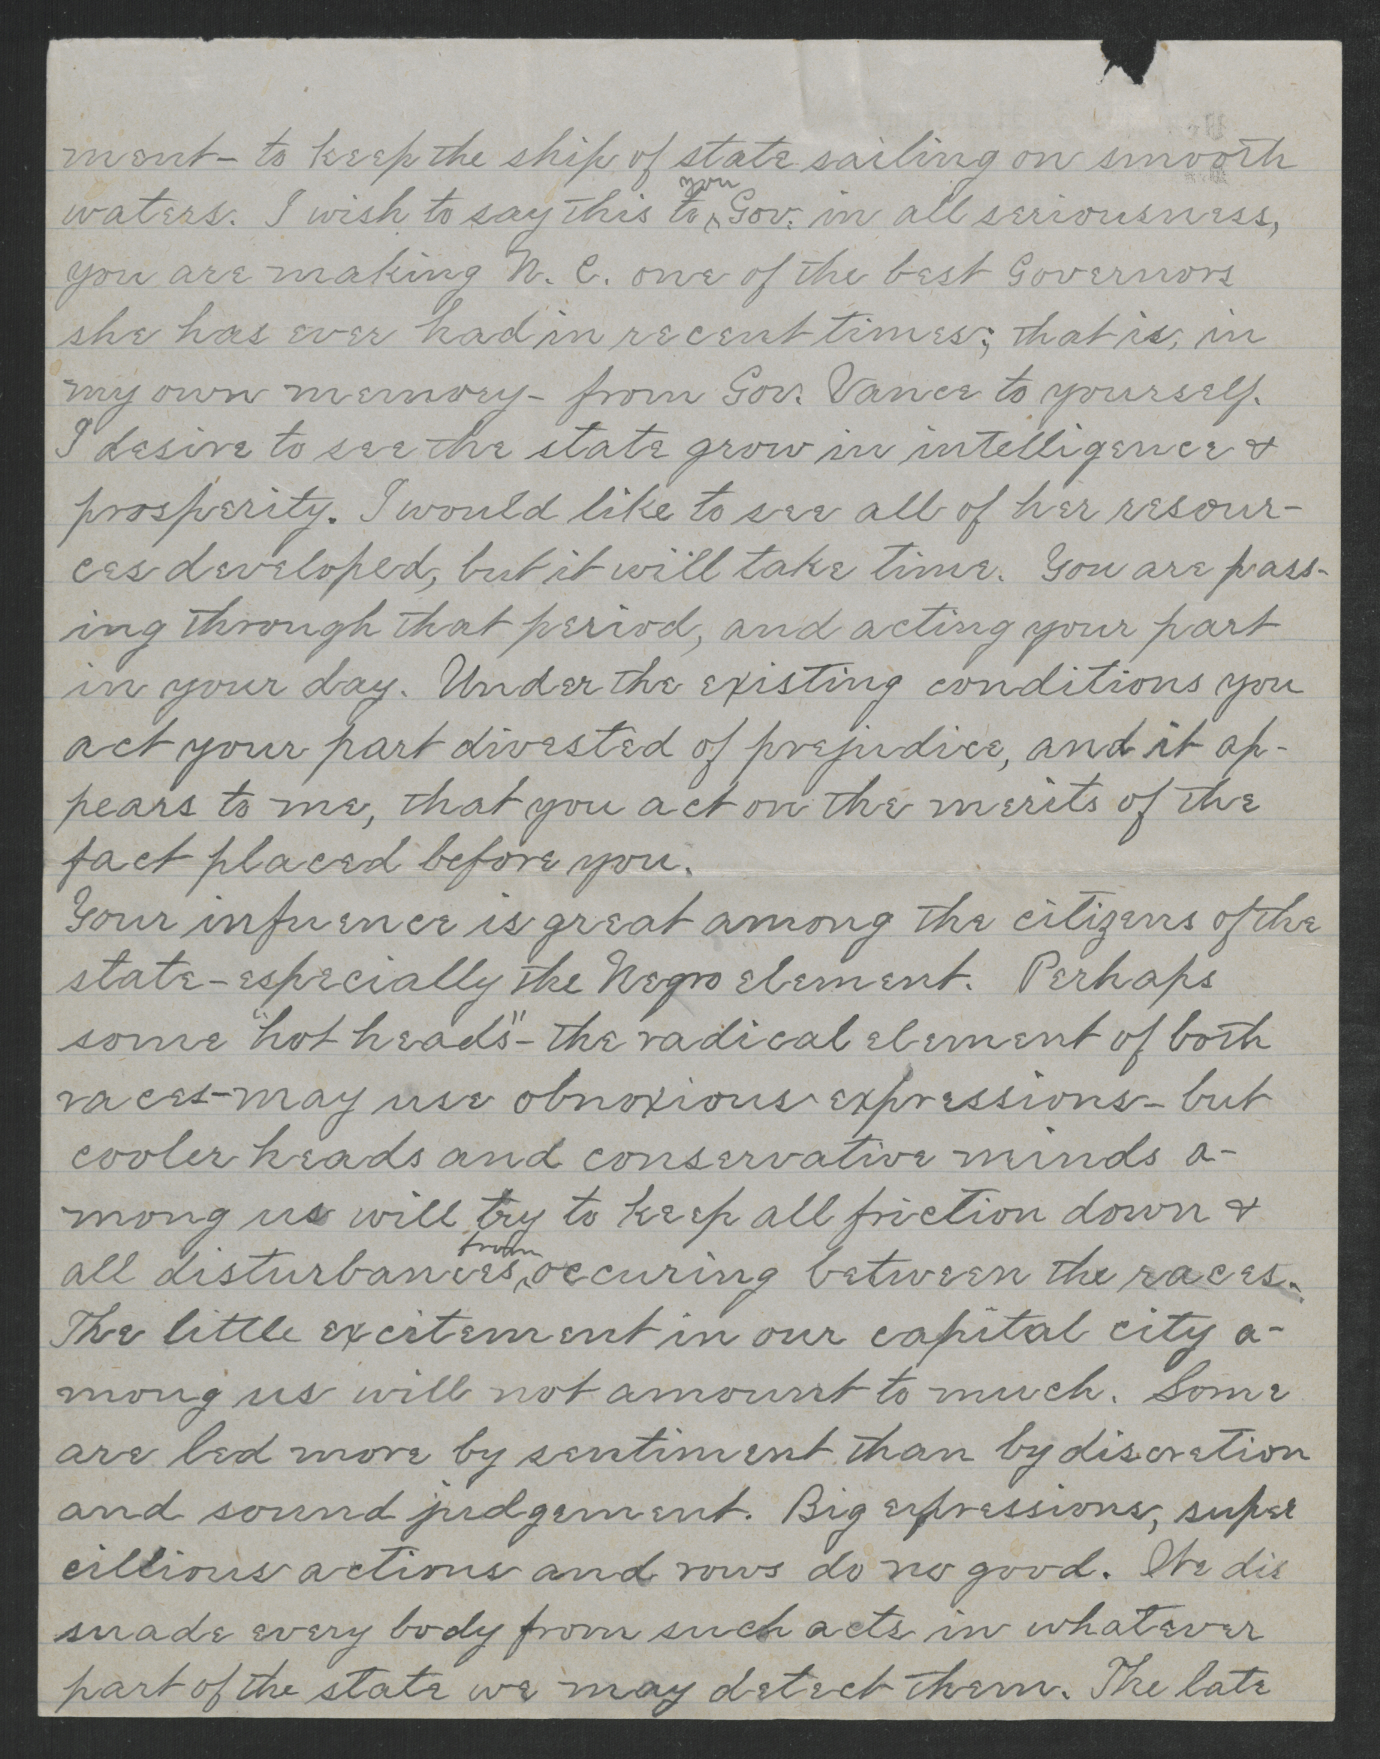 ment- to keep the ship of state sailing on smooth
waters. I wish to say this to you Gov. in all seriousness,
you are making N. C. one of the best Governors
she has ever had in recent times; that is, in
my own memory- from Gov. Vance to yourself.
I desire to see the state grow in intelligence &
prosperity. I would like to see all of her resour-
ces developed, but it will take time. You are pass-
ing through that period, and acting your part
in your day. Under the existing conditions you
act your part divested of prejudice, and it ap-
pears to me, that you act on the merits of the
fact placed before you.
Your infuence is great among the citizens of the
state-especially the Negro element. Perhaps
some "hot heads"- the radical element of both
races-may use obnoxious expressions- but
cooler heads and conservative minds a-
mong us will try to keep all friction down &
all disturbances from occuring between the races.
The little excitement in our capital city a-
mong us will not amount to much. Some
are led more by sentiment than by discretion
and sound judgement. Big expressions, super
cillious actions and rows do no good. We dis
suade every body from such acts in whatever
part of the state we may detect them. The late